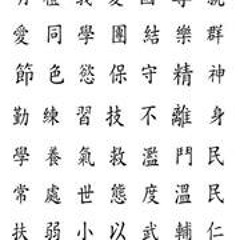 愛同學團結樂群
節色慾保守精神
勤練習技不離身
學養氣救濫鬥民
常處世態度溫民
扶弱小以武輔仁